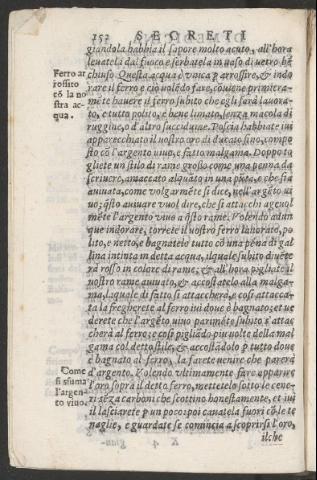 152 SECRETI
giandola habbia il sapore molto acuto, all'hora
leuatela dal fuoco e serbatela in uaso di uetro bē
chiuso. Questa acqua è vnica p arrossire, & indo
rare il ferro e ciò volēdo fare, cōuiene primitera
mēte hauere il ferro subito che egli sarà lauora-
to, e tutto polito, e bene limato, senza macola di
ruggine, o d'altro succidume. Poscia habbiate iui
apparecchiato il nostro oro di ducato fino, compo
sto cō l'argento uiuo, e fatto malgama. Doppo pi
gliete un stilo di rame grosso come una penna da
scriuere, amaccato alquāto in una pūta, e che sia
auiuata, come volgarmēte si dice, nell'argēto ui
uo; q̄sto auiuare vuol dire, che si attacchi agenol
mēte l'argento viuo a q̄sto rame. Volendo adun
que indorare, torrete il uostro ferro lauorato, po
lito, e netto, e bagnatelo tutto cō una pēna di gal
lina intinta in detta acqua, il quale subito diuēte
rà rosso in colore di rame, & all'hora pigliate il
nostro rame auiuato, & accostatelo alla malga-
ma, la quale di fatto si attaccherà, e così attacca-
ta la fregherete al ferro iui doue è bagnato; et ue
derete che l'argēto viuo parimēte subito s'attac
cherà al ferro; e così pigliādo piu volte della mal
gama col detto stile, & accostādolo p tutto doue
è bagnato al ferro, la farete uenire che parerà
d'argento. Volendo vltimamente fare apparire
l'oro sopra il detto ferro, mettetelo sotto le cene-
ri sēza carboni che scottino honestamente, et iui
il lasciarete p un poco: poi cauatela fuori cō le te
naglie, e guardate se comincia a scoprirsi l'oro,
ilche
Ferro ar
rossito
cō la no
stra ac-
qua.
Come
si sfuma
l'argen-
to viuo.